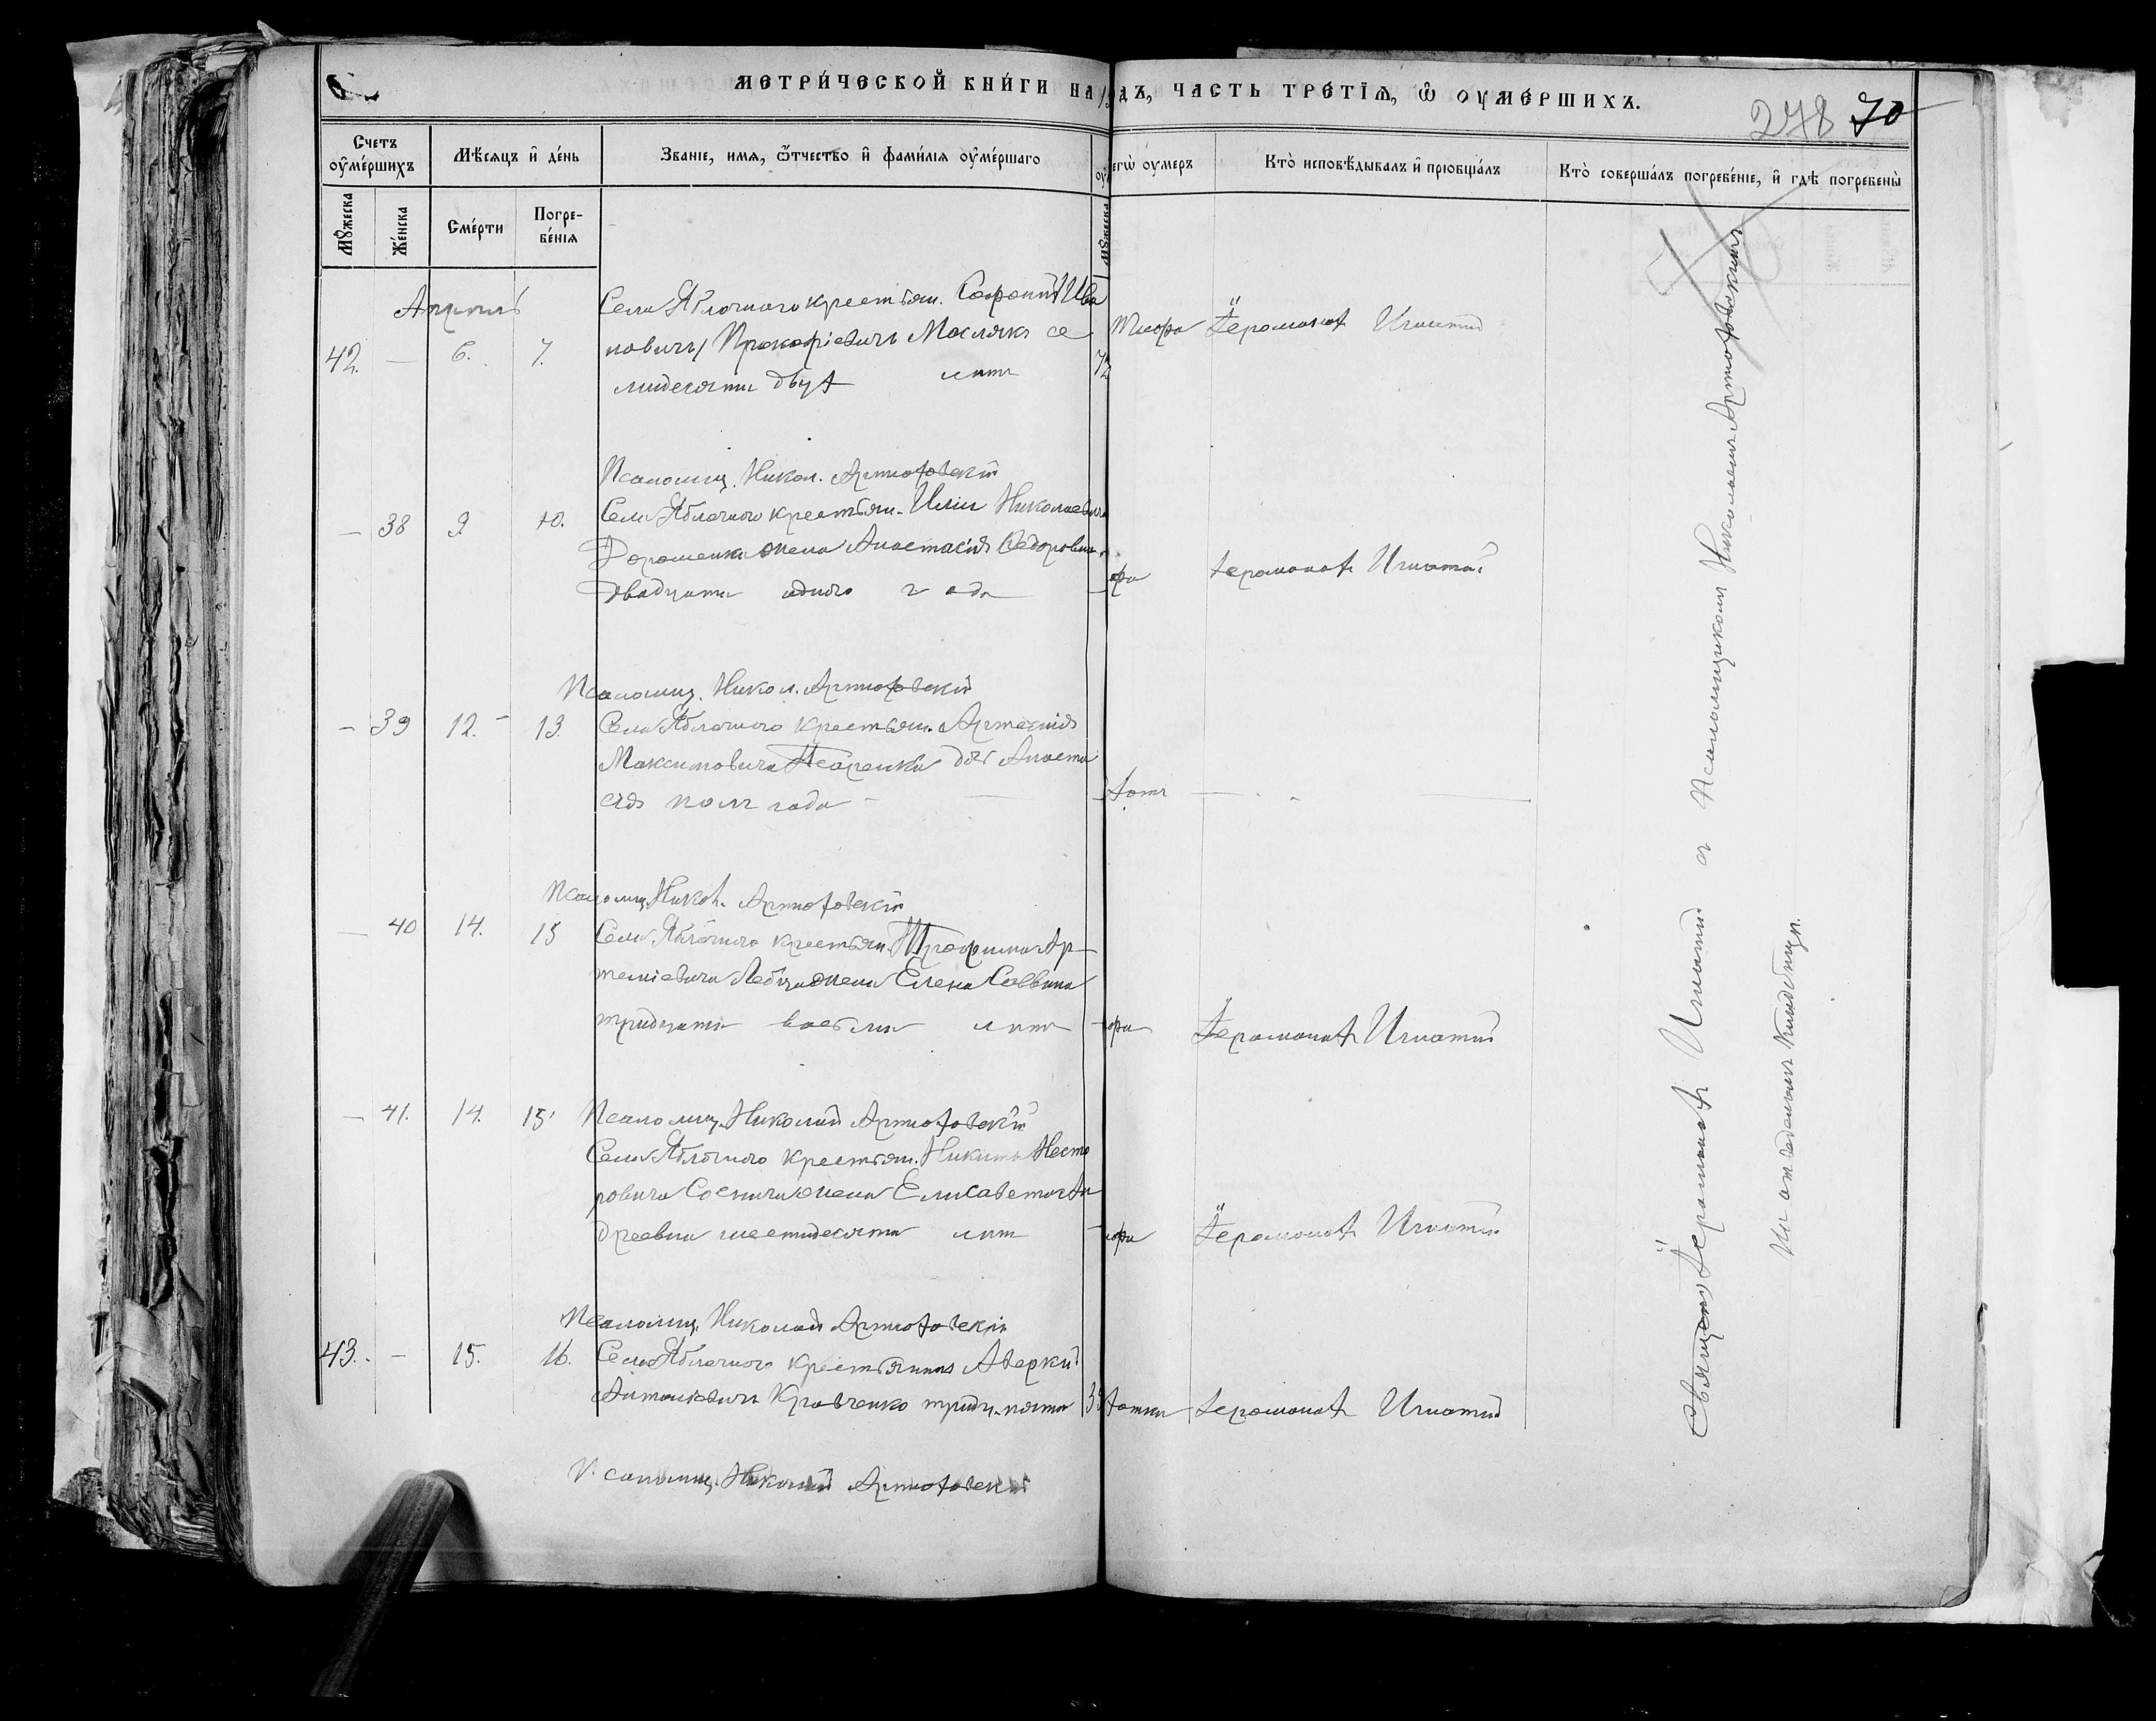 МЕТРИ́ЧЕСКОЙ КНИ́ГИ НА
ДЪ, ЧАСТЬ ТРЕ́ТІѦ, Ѡ ОУМЕ́РШИХЪ.
278 70
Счетъ оуме́ршихъ
Мѣсѧцъ и де́нь
Званіе, имѧ, ѿтчество и фами́лія оуме́ршаго
егѡ̀ оумеръ
Кто̀ исповѣ́дывалъ и пріобща́лъ
Кто̀ соверша́лъ погребе́ніе, и гдѣ̀ погребены̀
Мꙋжеска
Же́нска
Сме́рти
Погре-
бе́нія
Мꙋжеска
Апрель
Села Яблочного крестьян. Софоній Ива
42. — 6. 7. новичъ / Прокофіевичъ Маслякъ се
72 Тифа Іеромонахъ Игнатій
мидесяти двух лѣтъ
Псаломщ. Никол. Артюховскій
— 38 9. 10. Села Яблочного крестьян. Иліи Николаевича
Дорошенка жена Анастасія Федоровна
двадцати одного года — фа Іеромонахъ Игнатій
Псаломщ. Никол. Артюховскій
— 39 12. 13. Села Яблочного крестьян. Артемія
Максимовича дочь Анаста
сія полъ года —
Псаломщ. Никол. Артюховскій
— 40 14. 15 Села Яблочного крестьян. Трофима Ар-
теміевича жена Елена Саввина
тридцати восьми лѣтъ — Іеромонахъ Игнатій
— 41. 14. 15. Псаломщ. Николай Артюховскій
Села Яблочного крестьян. Никиты Несте
ровича жена Елисавета Ан
дреевна шестидесяти лѣтъ — Іеромонахъ Игнатій
Псаломщ. Николай Артюховскій
43. — 15. 16. Села Яблочного крестьянинъ Аверкій
Антоніевичъ Кравченко тридц. пяти 35 Іеромонахъ Игнатій
Псаломщ. Николай Артюховскій
Священ. Іеромонахъ Игнатій съ Псаломщикомъ Николаемъ Артюховскимъ
На кладбищѣ.